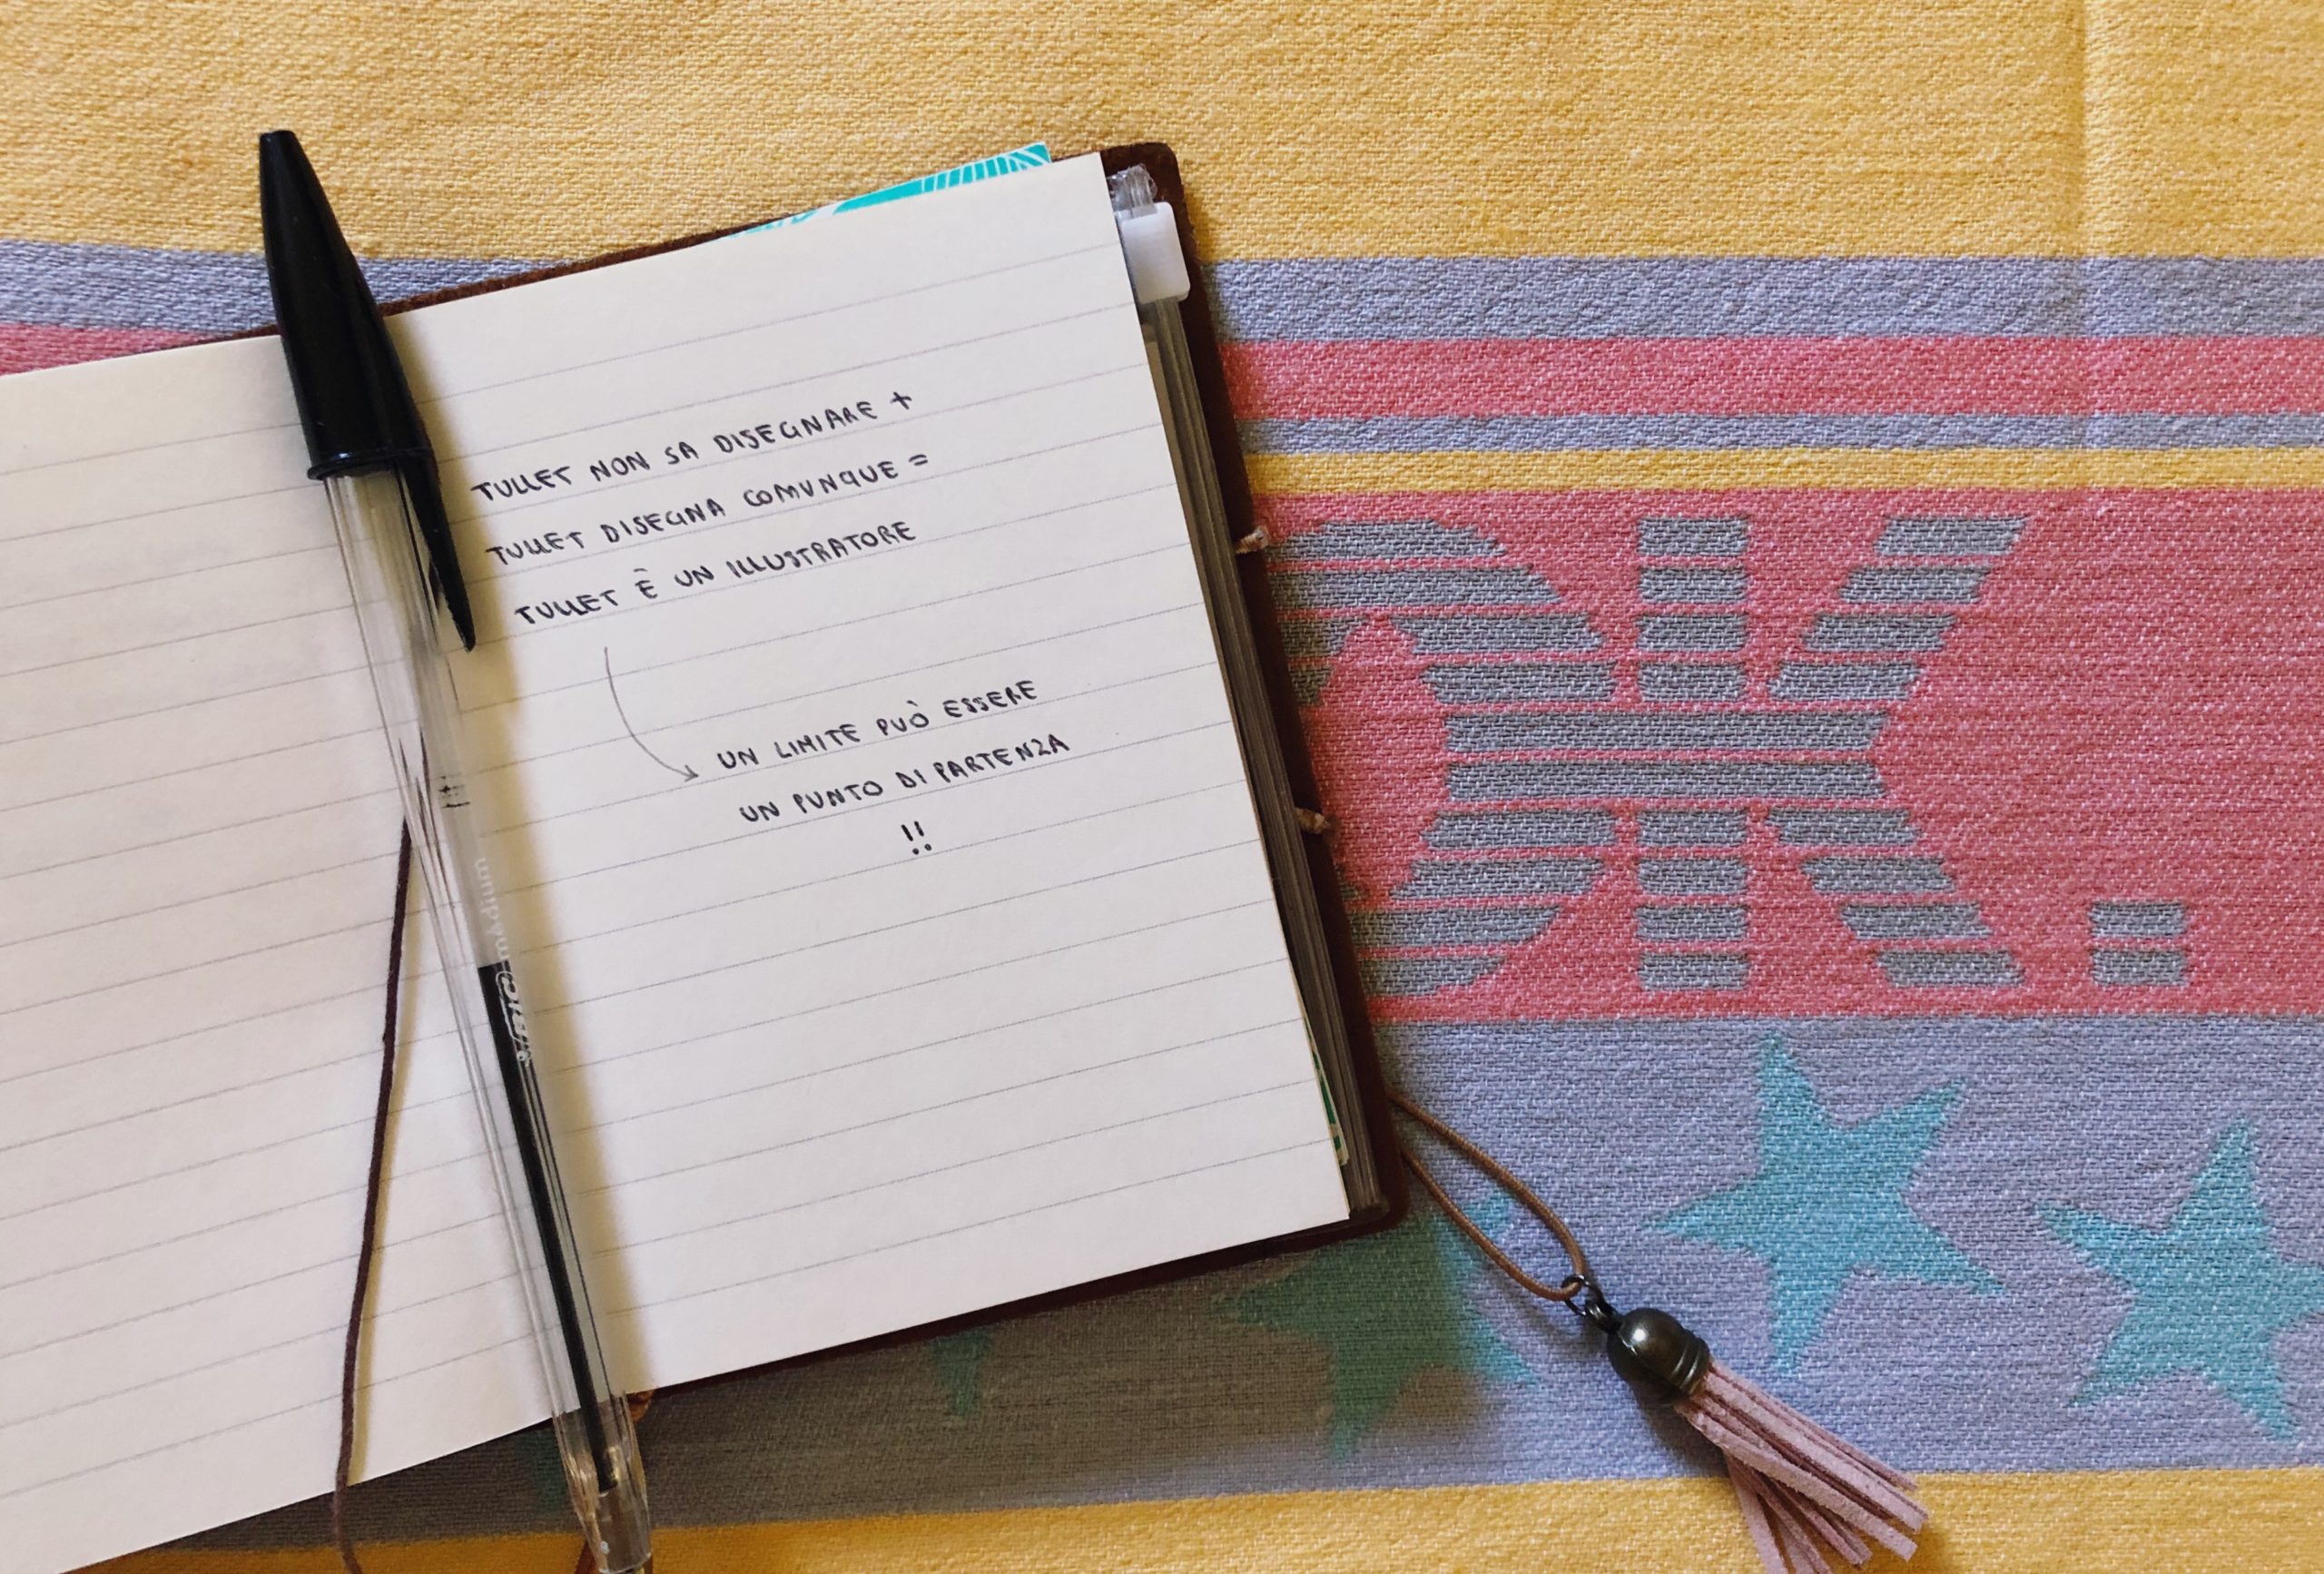 TULLET NON SA DISEGNARE +
TULLET DISEGNA COMUNQUE =
TULLET È UN ILLUSTRATORE
UN LIMITE PUÒ ESSERE
UN PUNTO DI PARTENZA
!!
médium